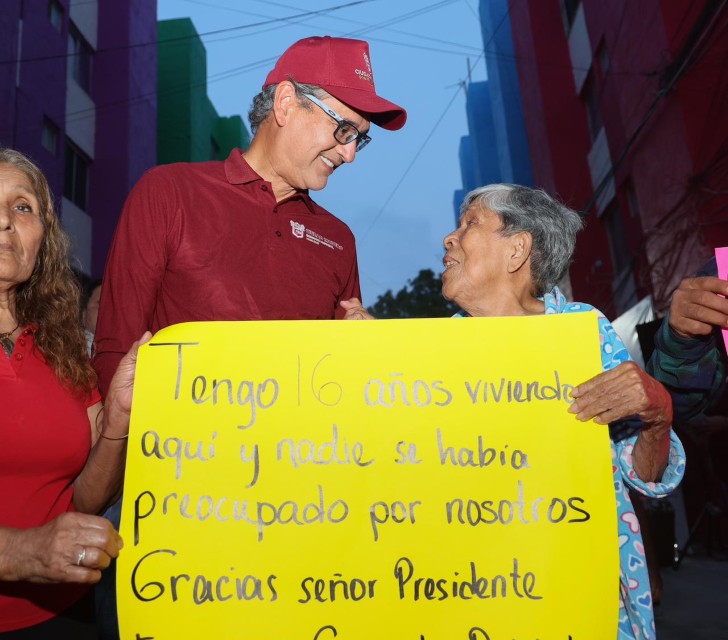 Tengo 16 años viviendo
aquí y nadie se había
preocupado por nosotros
Gracias señor Presidente